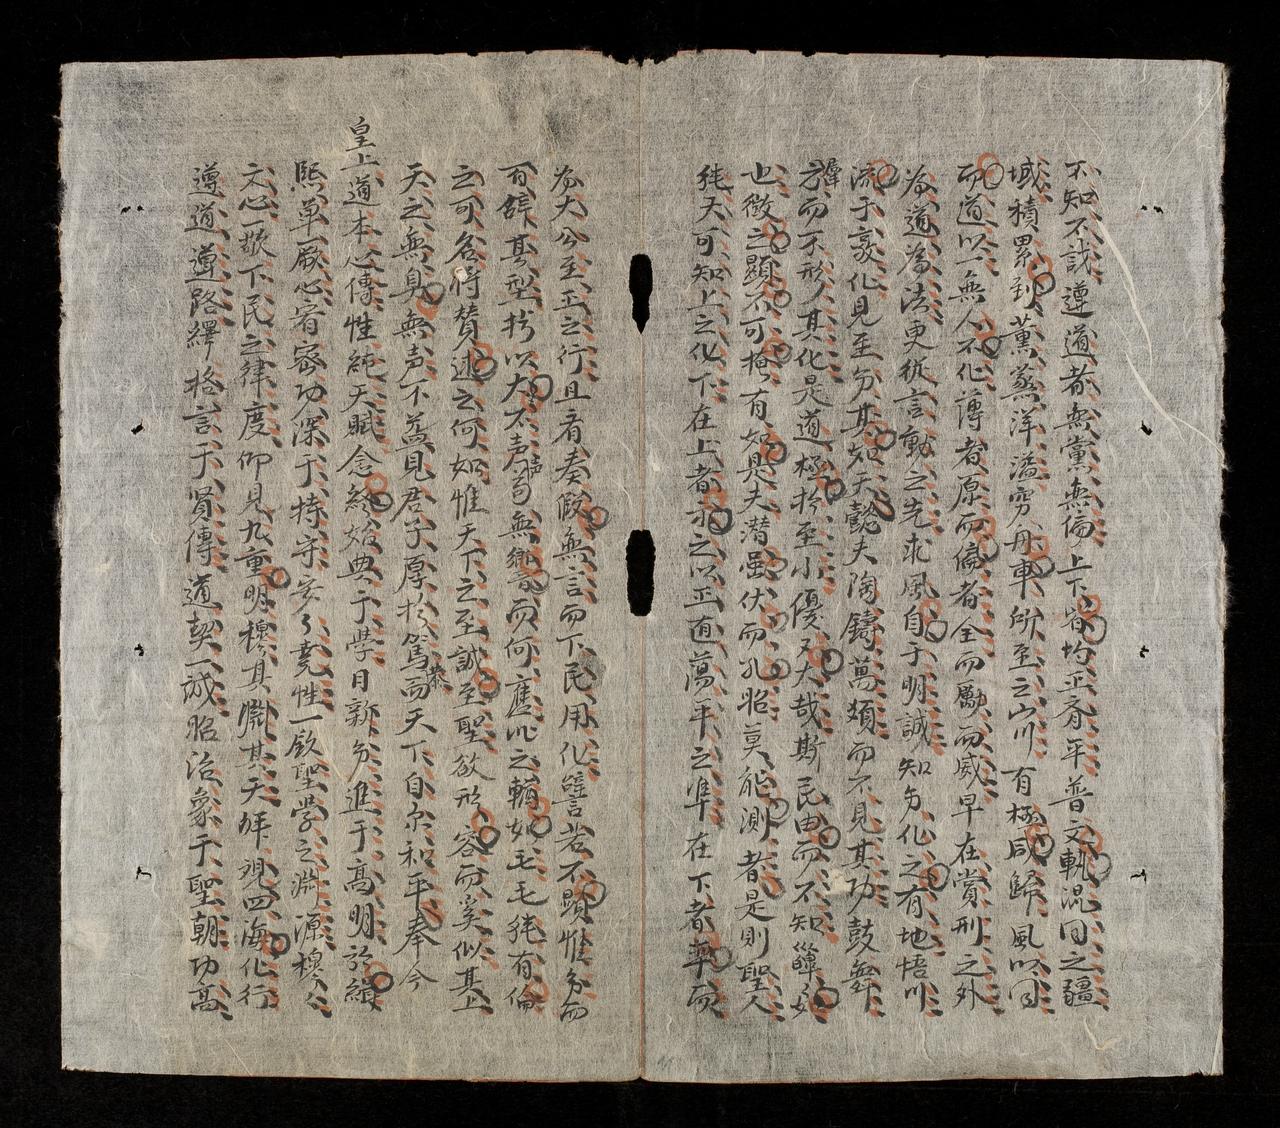 不知不識遵道者無黨無偏上下皆均正齊平普文軌混同之疆
域積累到薰蒸洋溢窮舟車所至之山川有極咸歸風以同
而道以一無人不化薄者原而僞者全而勵而威早在賞刑之外
為道為法更從言動之先求風自于明誠知幾化之有地悟川
流于敦化見至幾其如天懿夫陶鑄萬類而不見其功鼓舞
群方而不形其化是道極於至小優又大哉斯民由而不知皞皞如
也徵之顯不可掩有如是夫潛雖伏而孔昭莫能測者是則聖人
純天可知上之化下在上者示之以正直蕩平之準在下者率而
為大公至正之行且看奏假無言而下民用化譬若不顯惟幾而
百辟其型於以大不声声無響而何應比之輶如毛毛猶有倫
之可名將贊述之何如惟天下之至誠至聖欲形容而奚似其上
天之無臭無声不益見君子厚於篤恭而天下自尔和平奉今
皇上道本心傳性純天賦念終始典于學日新幾進于高明於緝
熙單厥心宥密功深于持守安安堯性一欽聖學之淵源穆穆
文心一撤下民之律度仰見九重明穆其淵其天拜覌四海化行
遵道遵路繹格言于賢傳道契一誠昭治象于聖朝功高